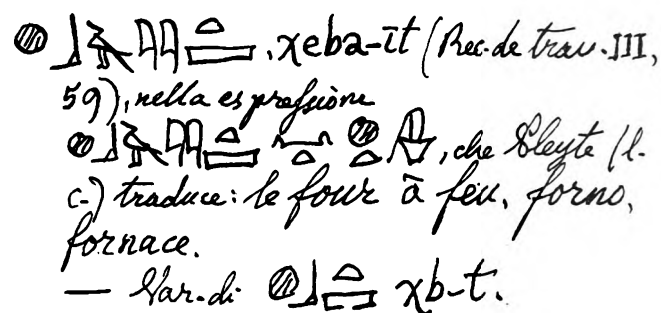 , χeba-īt (Rec. de trav. III,
59), nella espressione
, che Pleyte (l.
c.) traduce: le four à feu, forno,
fornace.
— Var. di χb-t.